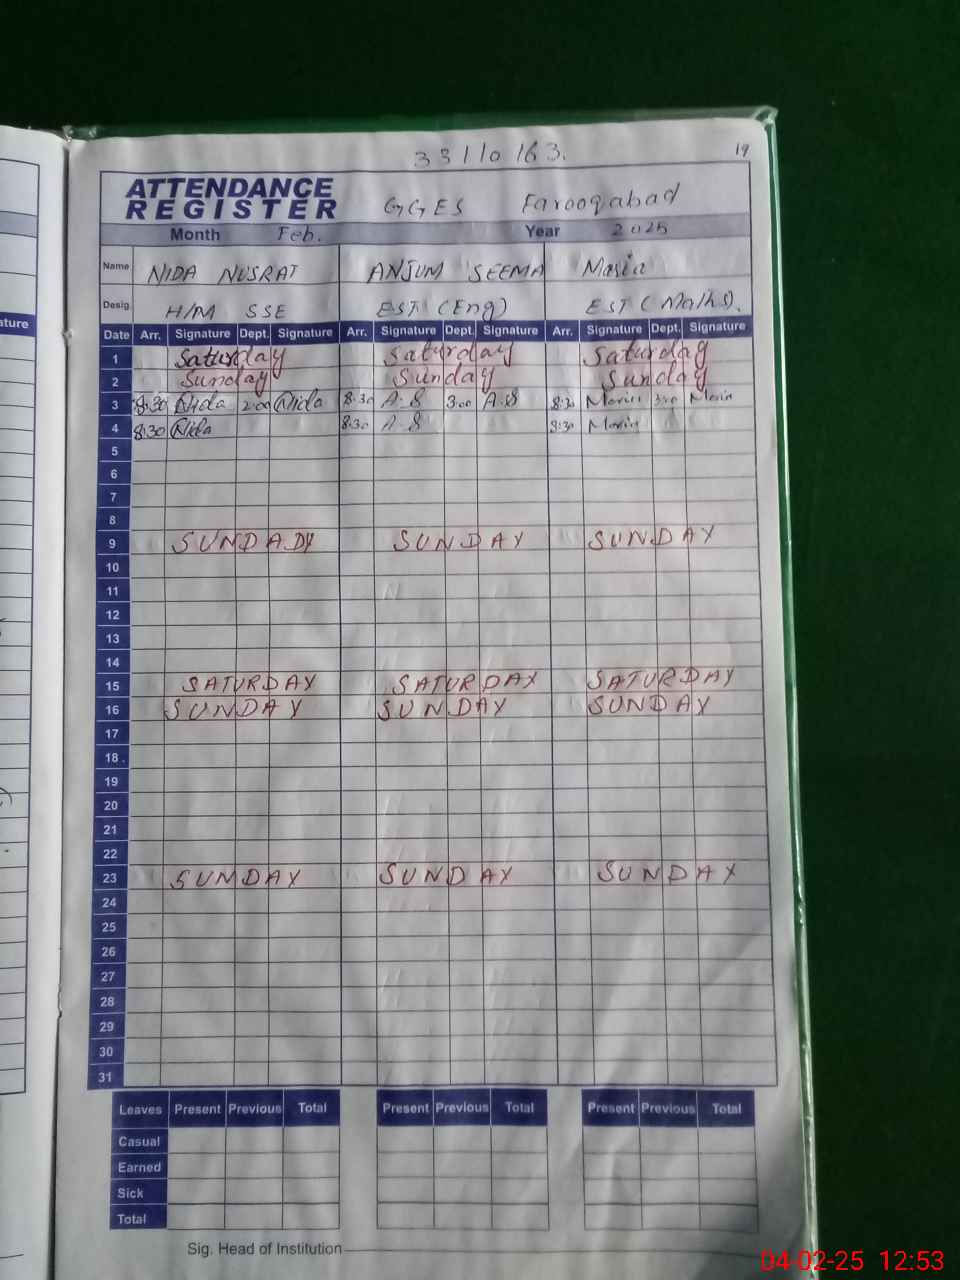 33110163. 19
ATTENDANCE
REGISTER GGES Farooqabad
Month Feb. Year 2025
Name NIDA NUSRAT ANJUM SEEMA Maria
Desig. H/M SSE EST (Eng) EST (Maths).
ature Date Arr. Signature Dept. Signature Arr. Signature Dept. Signature Arr. Signature Dept. Signature
1 Saturday Saturday Saturday
2 Sunday Sunday Sunday
3 8:30 Nida 2:00 Nida 8:30 A.S 3:00 A.S 8:30 Maria 3:00 Maria
4 8:30 Nida 8:30 A.S 8:30 Maria
5
6
7
8
9 SUNDADY SUNDAY SUNDAY
10
11
12
13
14
15 SATURDAY SATURDAY SATURDAY
16 SUNDAY SUNDAY SUNDAY
17
18
19
20
21
22
23 SUNDAY SUNDAY SUNDAY
24
25
26
27
28
29
30
31
Leaves Present Previous Total Present Previous Total Present Previous Total
Casual
Earned
Sick
Total
Sig. Head of Institution
04-02-25 12:53